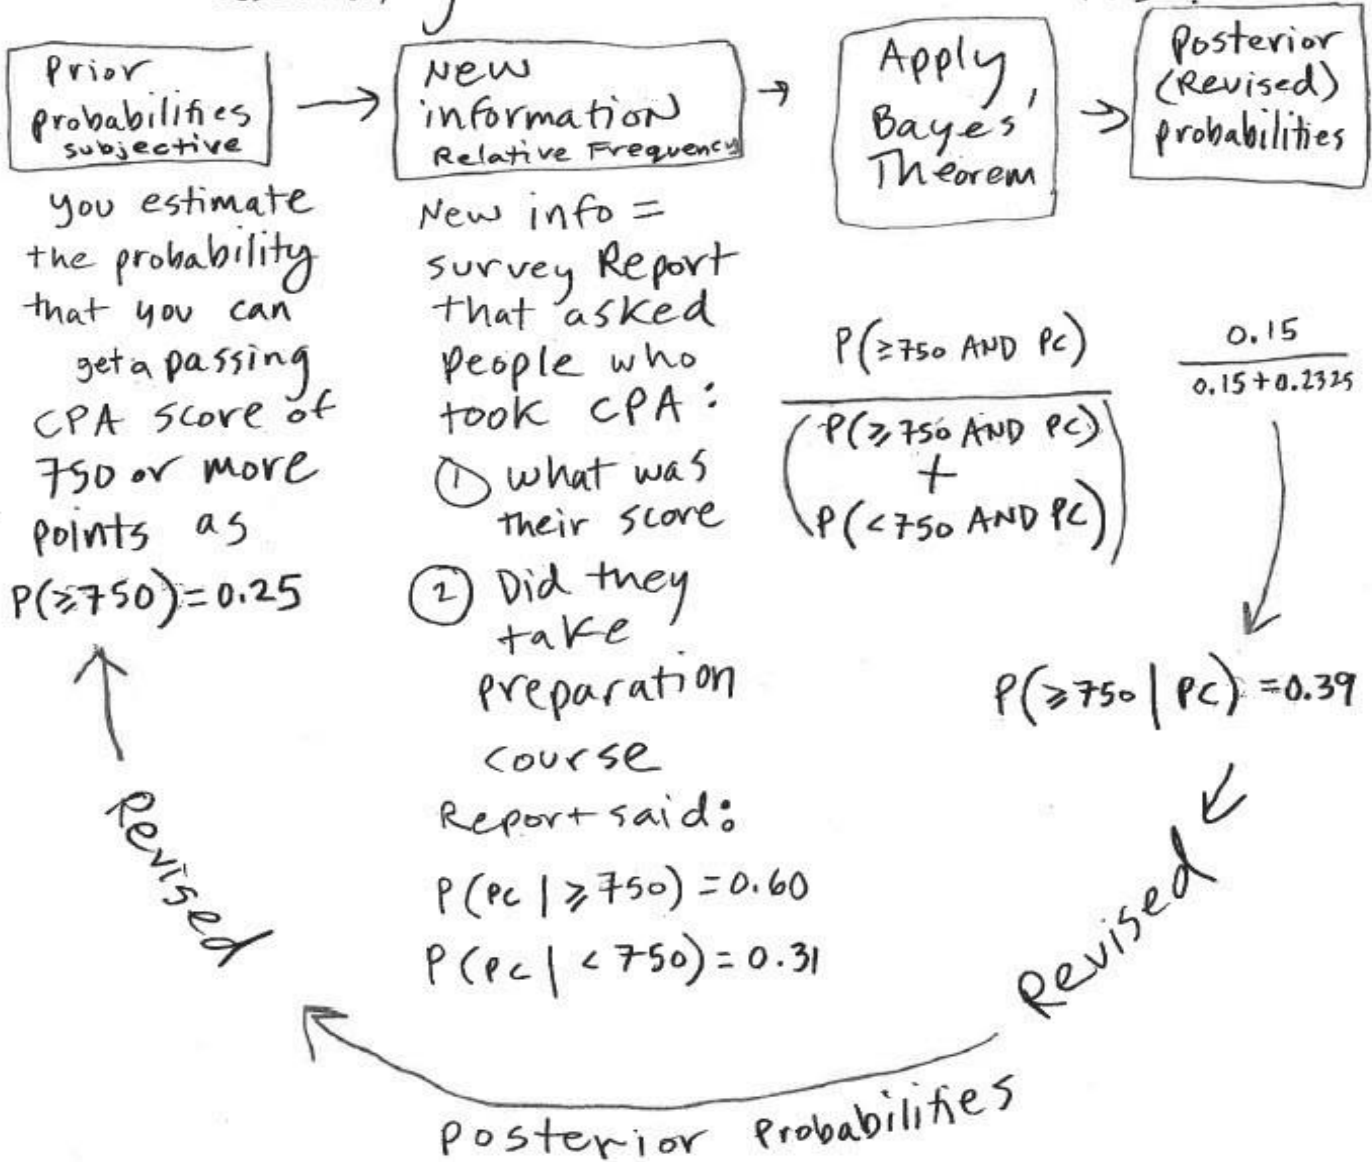 Prior
probabilities
subjective
New
information
Relative Frequency
Apply
Bayes'
Theorem
Posterior
(Revised)
probabilities
you estimate
the probability
that you can
get a passing
CPA score of
750 or more
points as
P(≥750)=0.25
New info =
survey Report
that asked
people who
took CPA:
① what was
their score
② Did they
take
preparation
course
Report said:
P(PC | ≥750) = 0.60
P(PC | < 750) = 0.31
P(≥750 AND PC)
P(≥750 AND PC)
+
P(<750 AND PC)
0.15
0.15+0.2325
P(≥750 | PC) =0.39
Revised
Posterior Probabilities
Revised